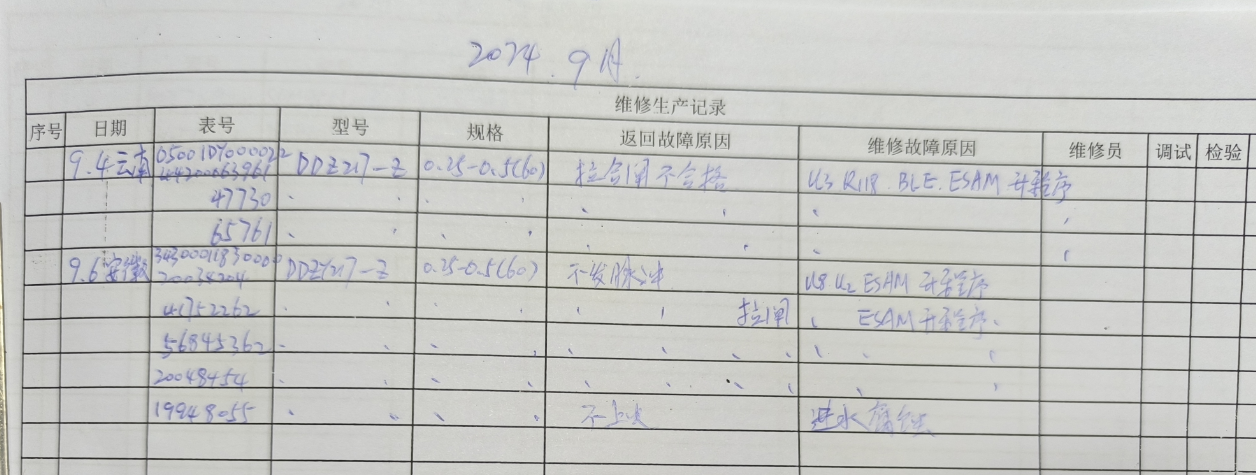 2024.9月.
维修生产记录
序号 日期 表号 型号 规格 返回故障原因 维修故障原因 维修员 调试 检验
9.4云南 DDZY217-Z 0.25-0.5(60) 拉合闸不合格 U3 R118.BLE.ESAM 升程序
47730
65761
9.6安徽 DDZY217-Z 0.25-0.5(60) 不发脉冲 U8 U2 ESAM 升程序
41752262 拉闸 ESAM升程序.
56845362
20048454
19948055 不上火 进水腐蚀